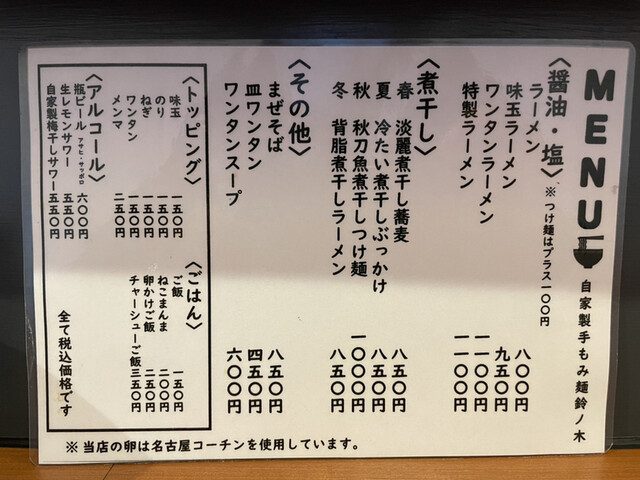 MENU
自家製手もみ麺鈴ノ木
〈醤油・塩〉
※つけ麺はプラス一〇〇円
ラーメン 八〇〇円
味玉ラーメン 九五〇円
ワンタンラーメン 一一〇〇円
特製ラーメン 一一〇〇円
〈煮干し〉
春 淡麗煮干し蕎麦 八五〇円
夏 冷たい煮干しぶっかけ 八五〇円
秋 秋刀魚煮干しつけ麺 一〇〇〇円
冬 背脂煮干しラーメン 八五〇円
〈その他〉
まぜそば 八五〇円
皿ワンタン 四五〇円
ワンタンスープ 六〇〇円
〈トッピング〉
味玉 一五〇円
のり 一五〇円
ねぎ 一五〇円
ワンタン 二五〇円
メンマ 二五〇円
〈ごはん〉
ご飯 一五〇円
ねこまんま 二〇〇円
卵かけご飯 二五〇円
チャーシューご飯 三五〇円
〈アルコール〉
瓶ビール アサヒ・サッポロ 六〇〇円
生レモンサワー 五五〇円
自家製梅干しサワー 五五〇円
全て税込価格です
※当店の卵は名古屋コーチンを使用しています。